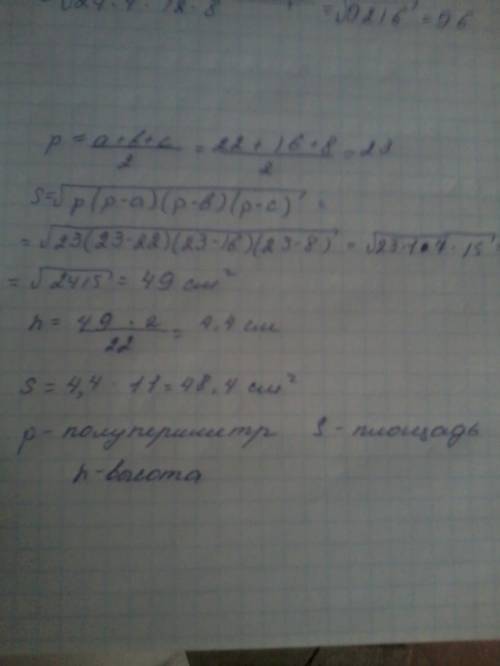 = √0216 = 06
p = a+b+c/2 = 22+16+8/2 = 23
S = √p(p-a)(p-b)(p-c) =
= √23(23-22)(23-16)(23-8) = √23·1·7·15 =
= √2415 = 49 см²
h = 49·2/22 = 4.4 см
S = 4,4 · 11 = 48.4 см²
p - полупериметр S - площадь
h - высота